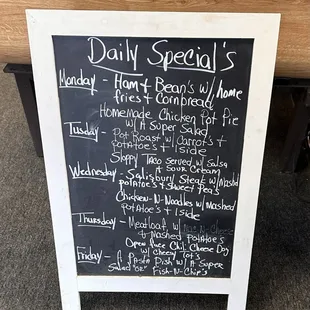 Daily Special's
Monday - Ham & Bean's w/ home
fries & Cornbread
Homemade Chicken Pot Pie
w/ A Super Salad
Tusday - Pot Roast w/ Carrots &
potatoe's & 1 side
Sloppy Taco Served w/ Salsa
& Sour Cream
Wednesday - Salisbury Steak w/ Mashd
potatoe's & Sweet Peas
Chicken-N-Noodles w/ Mashed
Potatoe's & 1 side
Thursday - Meatloaf w/ Mac-N-Cheese
& Mashed potatoes
Open face Chili Cheese Dog
w/ Cheesy Tot's
Friday - A Pasta Dish w/ A Super
Salad "OR" Fish-N-Chip's